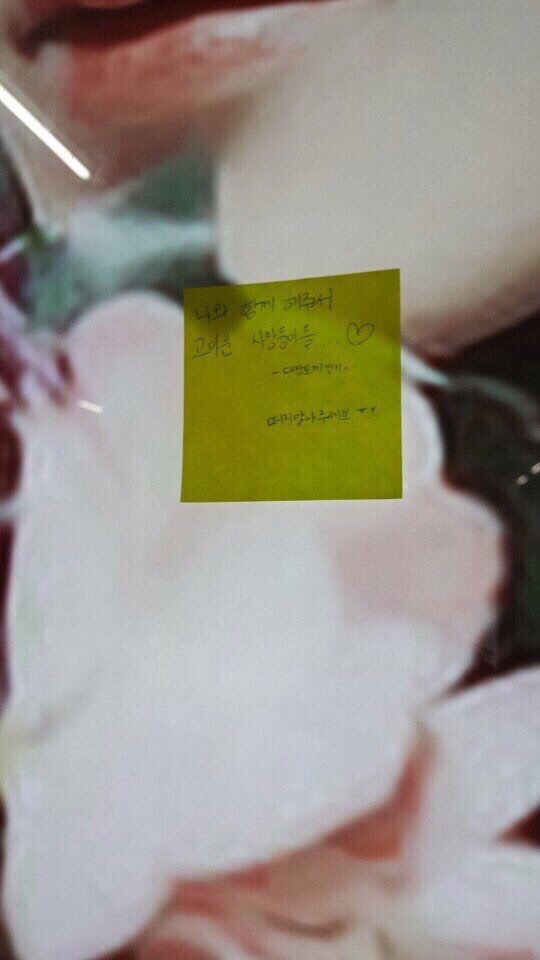 나와 함께 해주서
고마운 사랑둥이들...♡
-대깔토끼 민기-
떼지말아주세요 ㅠㅠ